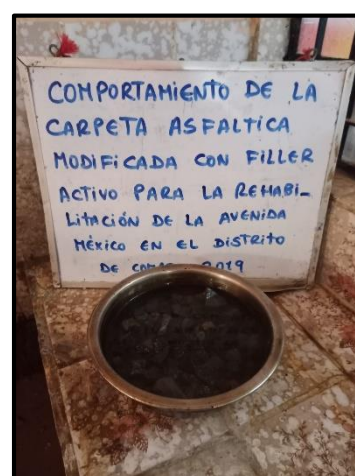 COMPORTAMIENTO DE LA
CARPETA ASFALTICA
MODIFICADA CON FILLER
ACTIVO PARA LA REHABI-
LITACIÓN DE LA AVENIDA
MÉXICO EN EL DISTRITO
DE 2019